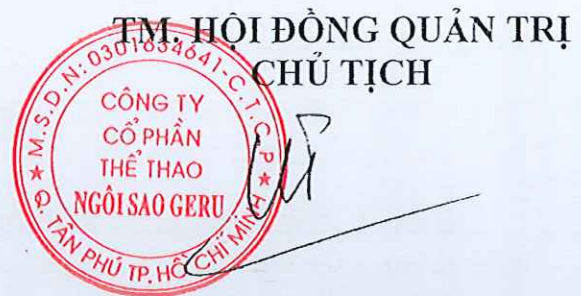 TM. HỘI ĐỒNG QUẢN TRỊ
CHỦ TỊCH
M.S.D.N: 0301654641-C.T.C.P
CÔNG TY
CỔ PHẦN
THỂ THAO
NGÔI SAO GERU
Q. TÂN PHÚ TP. HỒ CHÍ MINH